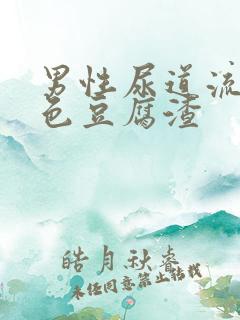 男性尿道流
色豆腐渣
皓月秋睿
未经同意禁止转载